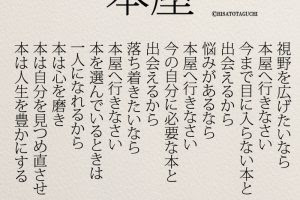 本屋
©HISATOTAGUCHI
視野を広げたいなら
本屋へ行きなさい
今まで目に入らない本と
出会えるから
悩みがあるなら
本屋へ行きなさい
今の自分に必要な本と
出会えるから
落ち着きたいなら
本屋へ行きなさい
本を選んでいるときは
一人になれるから
本は心を磨き
本は自分を見つめ直させ
本は人生を豊かにする